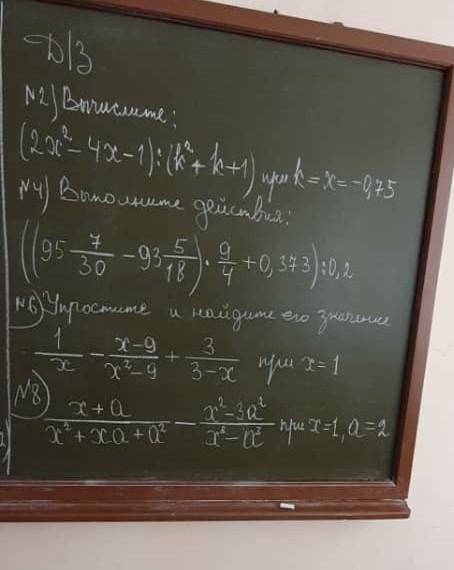 Д/З
№2) Вычислите:
(2x² - 4x - 1) : (k² + k + 1) при k = x = -0,75
№4) Выполните действия:
((95 7/30 - 93 5/18) · 9/4 + 0,373) : 0,2
№6) Упростите и найдите его значение
1/x - (x-9)/(x²-9) + 3/(3-x) при x = 1
№8)
(x+a)/(x²+xa+a²) - (x²-3a²)/(x³-a³) при x=1, a=2